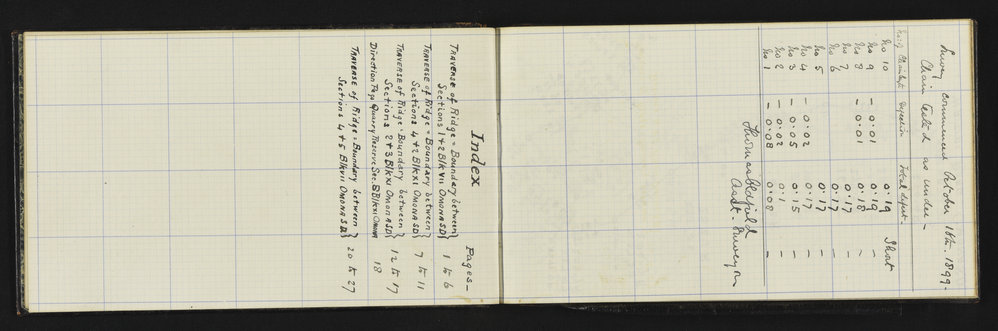 Survey commenced October 18th. 1899.
Chain tested as under -
No of Chainlength Dependion Total deficit.
No 10 0.19 Short
No 9 - 0.01 0.19 -
No 8 - 0.01 0.18 ~
No 7 0.17 -
No 6 0.17 -
No 5 0.17 -
No 4 - 0.02 0.17 -
No 3 - 0.05 0.15 -
No 2 - 0.02 0.1 -
No 1 - 0.08 0.08 -
Thomas Oldfield
Asst. Surveyor
Index
Pages -
Traverse of Ridge = Boundary between
Sections 1 & 2 Blk VII Omona SD } 1 to 6
Traverse of Ridge = Boundary between
Sections 4 & 2 Blk XI Omona SD } 7 to 11
Traverse of Ridge = Boundary between
Sections 2 & 3 Blk XI Omona SD } 12 to 17
Direction Pego Quarry Reserve Sec. 5 Blk XI Omona 18
Traverse of Ridge = Boundary between
Sections 4 & 5 Blk VII Omona SD } 20 to 27